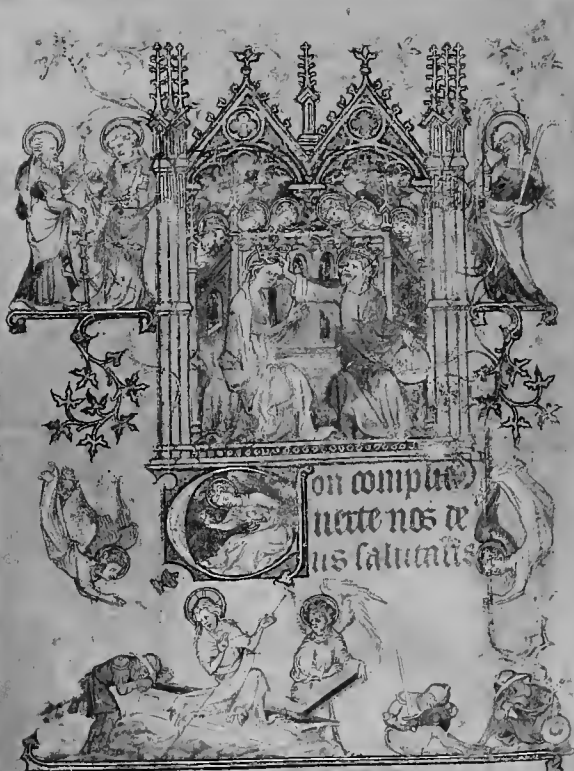 Con complie
uerte nos de
us salutaris